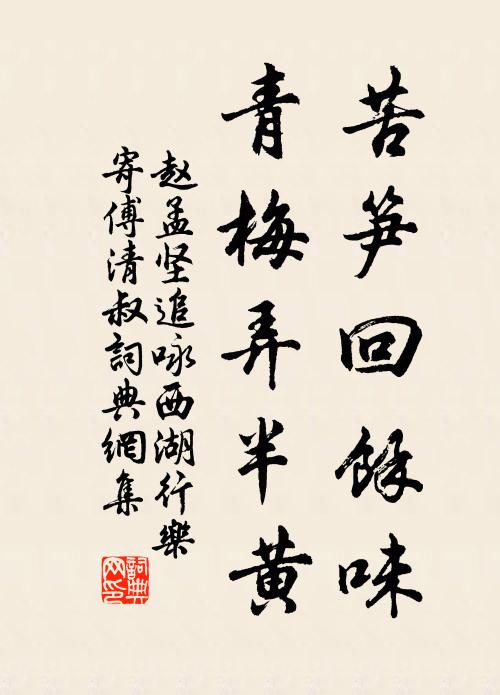 苦笋回餘味
青梅弄半黄
赵孟坚追咏西湖行樂
寄傅清叔詞典網集
詞典
网印